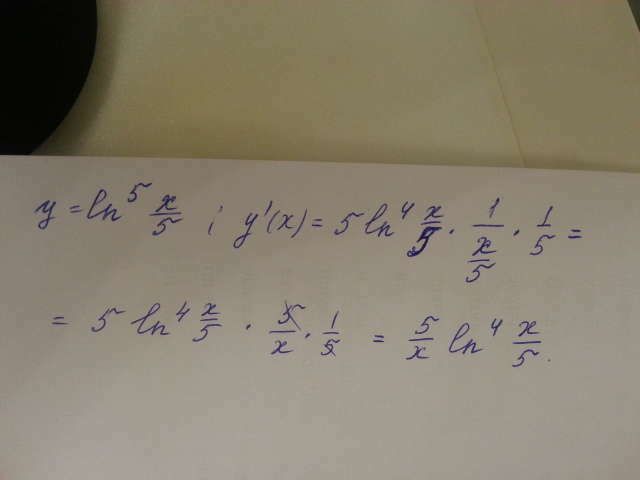 y = ln⁵ x/5 ; y'(x) = 5 ln⁴ x/5 · 1/(x/5) · 1/5 =
= 5 ln⁴ x/5 · 5/x · 1/5 = 5/x ln⁴ x/5.